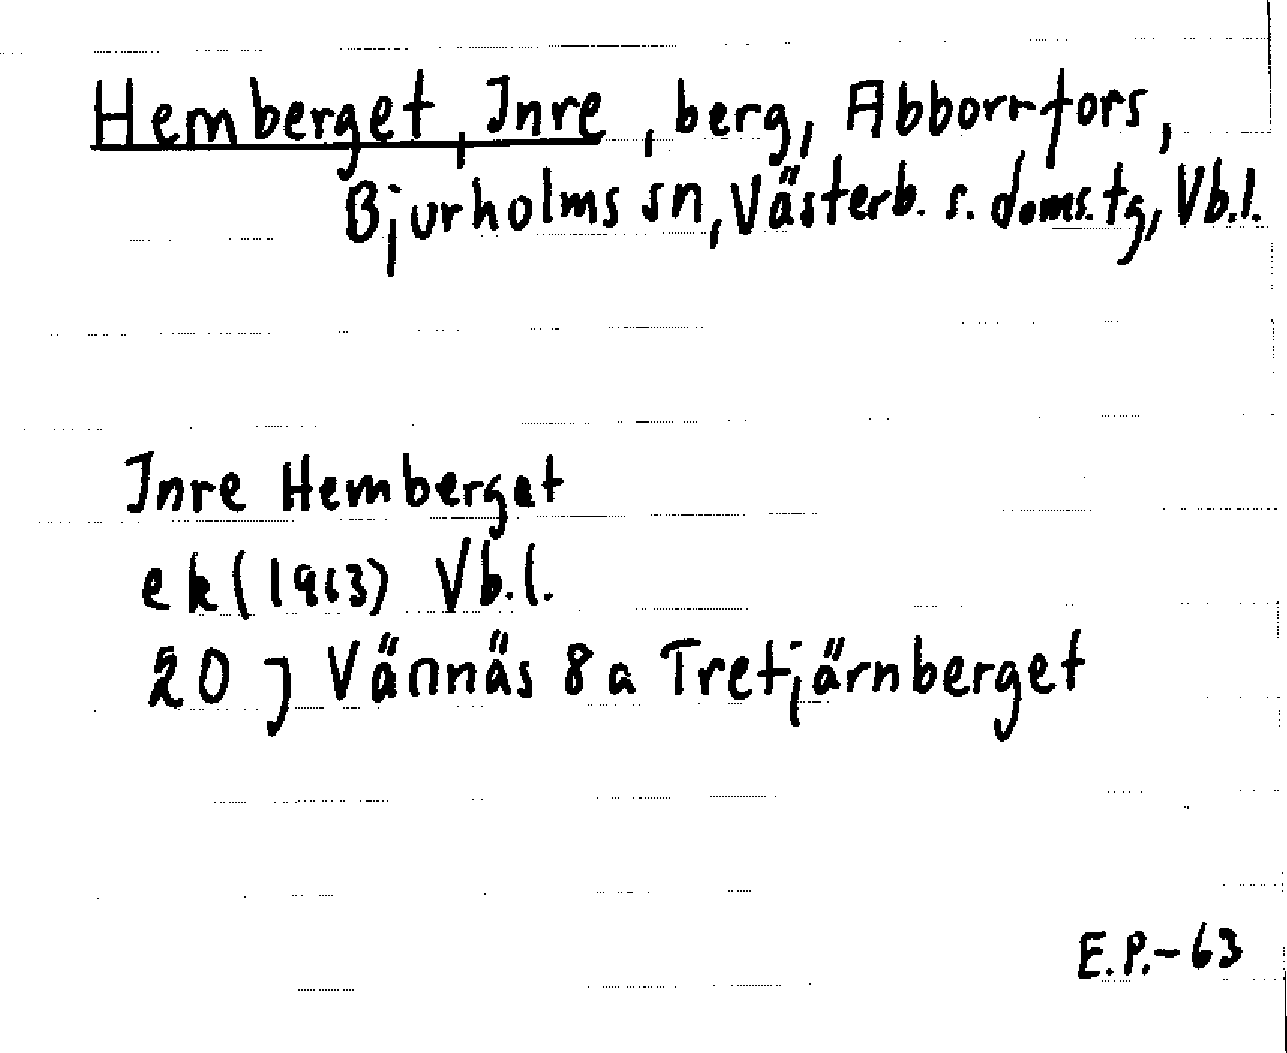 Hemberget, Inre, berg, Abborrfors,
Bjurholms sn, Västerb. s. doms. tg, Vb.l.
Inre Hemberget
ek (1963) Vb.l.
20 J Vännäs 8a Tretjärnberget
E.P.-63